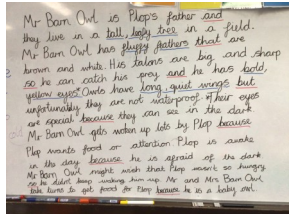 Mr Barn Owl is Plop's father and
they live in a tall, leafy tree in a field.
Mr Barn Owl has fluffy feathers that are
brown and white. His talons are big and sharp
so he can catch his prey and he has bold,
yellow eyes. Owls have long, quiet wings but
unfortunately they are not waterproof. Their eyes
are special because they can see in the dark.
Mr Barn Owl gets woken up lots by Plop because
Plop wants food or attention. Plop is awake
in the day because he is afraid of the dark.
Mr Barn Owl might wish that Plop wasn't so hungry
so he didn't keep waking him up. Mr and Mrs Barn Owl
take turns to get food for Plop because he is a baby owl.